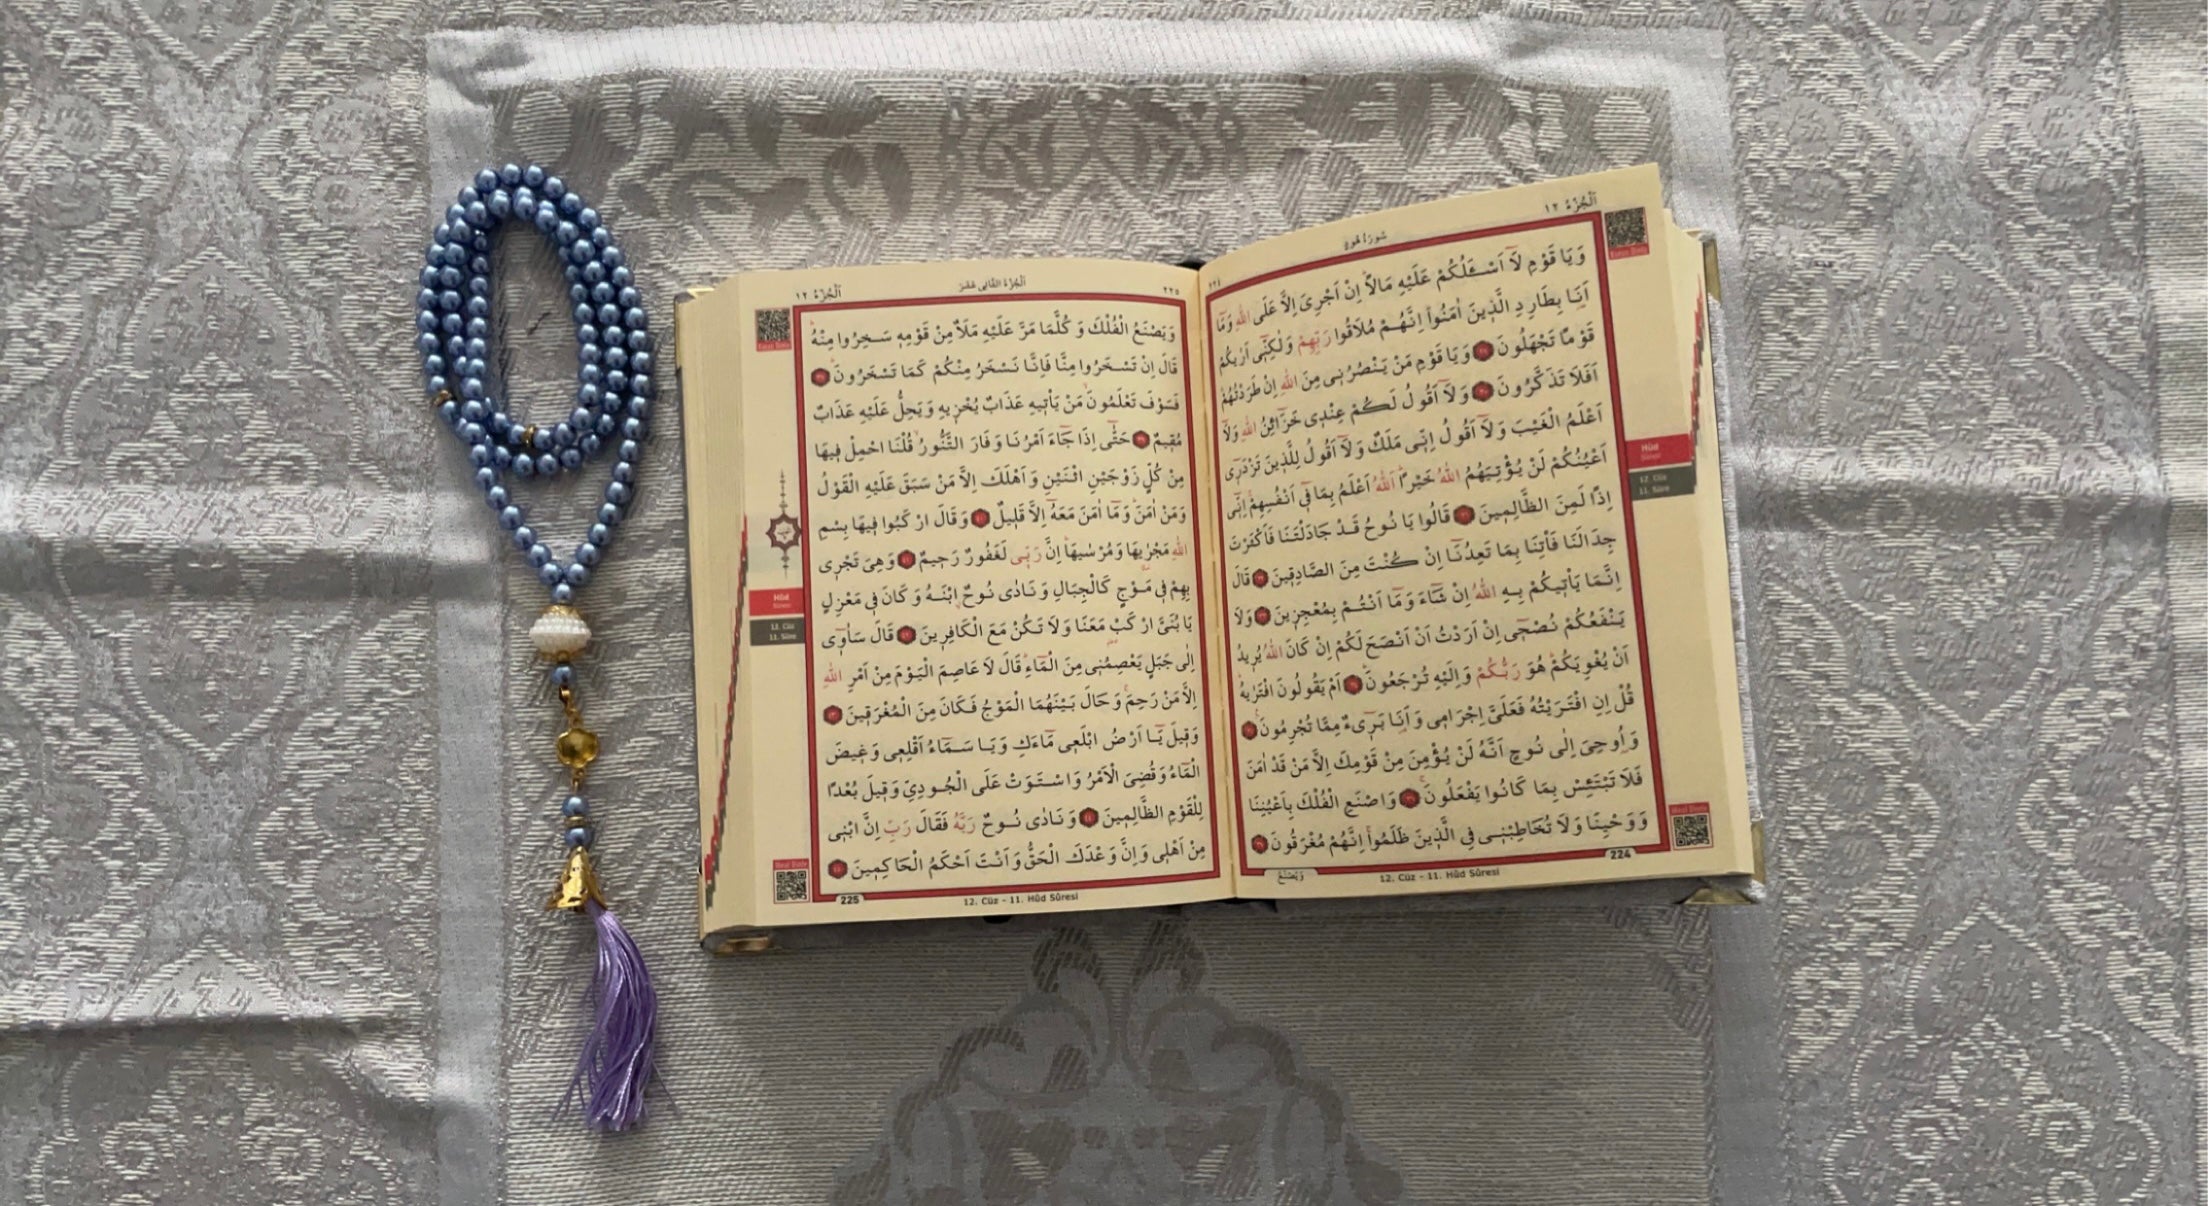 اَلْجُزْءُ ١٢
سُورَةُ هُودٍ
٢٢٤
وَيَا قَوْمِ لَٓا اَسْـَٔلُكُمْ عَلَيْهِ مَالاًۜ اِنْ اَجْرِىَ اِلَّا عَلَى اللّٰهِ وَمَٓا
اَنَا۬ بِطَارِدِ الَّذ۪ينَ اٰمَنُواۜ اِنَّهُمْ مُلَاقُوا رَبِّهِمْ وَلٰكِنّ۪ٓى اَرٰيكُمْ
قَوْمًا تَجْهَلُونَ ﴿٢٩﴾ وَيَا قَوْمِ مَنْ يَنْصُرُن۪ى مِنَ اللّٰهِ اِنْ طَرَدْتُهُمْۜ
اَفَلَا تَذَكَّرُونَ ﴿٣٠﴾ وَلَٓا اَقُولُ لَكُمْ عِنْد۪ى خَزَٓائِنُ اللّٰهِ وَلَٓا
اَعْلَمُ الْغَيْبَ وَلَٓا اَقُولُ اِنّ۪ى مَلَكٌ وَلَٓا اَقُولُ لِلَّذ۪ينَ تَزْدَر۪ٓى
اَعْيُنُكُمْ لَنْ يُؤْتِيَهُمُ اللّٰهُ خَيْرًاۜ اَللّٰهُ اَعْلَمُ بِمَا ف۪ٓى اَنْفُسِهِمْۚ اِنّ۪ٓى
اِذًا لَمِنَ الظَّالِم۪ينَ ﴿٣١﴾ قَالُوا يَا نُوحُ قَدْ جَادَلْتَنَا فَاَكْثَرْتَ
جِدَالَنَا فَأْتِنَا بِمَا تَعِدُنَٓا اِنْ كُنْتَ مِنَ الصَّادِق۪ينَ ﴿٣٢﴾ قَالَ
اِنَّمَا يَأْت۪يكُمْ بِهِ اللّٰهُ اِنْ شَٓاءَ وَمَٓا اَنْتُمْ بِمُعْجِز۪ينَ ﴿٣٣﴾ وَلَا
يَنْفَعُكُمْ نُصْح۪ٓى اِنْ اَرَدْتُ اَنْ اَنْصَحَ لَكُمْ اِنْ كَانَ اللّٰهُ يُر۪يدُ
اَنْ يُغْوِيَكُمْۜ هُوَ رَبُّكُمْ وَاِلَيْهِ تُرْجَعُونَۜ ﴿٣٤﴾ اَمْ يَقُولُونَ افْتَرٰيهُۜ
قُلْ اِنِ افْتَرَيْتُهُ فَعَلَىَّ اِجْرَام۪ى وَاَنَا۬ بَر۪ٓىءٌ مِمَّا تُجْرِمُونَ۟ ﴿٣٥﴾
وَاُو۫حِىَ اِلٰى نُوحٍ اَنَّهُ لَنْ يُؤْمِنَ مِنْ قَوْمِكَ اِلَّا مَنْ قَدْ اٰمَنَ
فَلَا تَبْتَئِسْ بِمَا كَانُوا يَفْعَلُونَۚ ﴿٣٦﴾ وَاصْنَعِ الْفُلْكَ بِاَعْيُنِنَا
وَوَحْيِنَا وَلَا تُخَاطِبْن۪ى فِى الَّذ۪ينَ ظَلَمُواۚ اِنَّهُمْ مُغْرَقُونَ ﴿٣٧﴾
224
12. Cüz - 11. Hûd Sûresi
وَيَصْنَعُ
Hûd
Sûresi
12. Cüz
11. Sûre
٢٢٥
اَلْجُزْءُ الثَّانِى عَشَرَ
اَلْجُزْءُ ١٢
وَيَصْنَعُ الْفُلْكَ وَكُلَّمَا مَرَّ عَلَيْهِ مَلَأٌ مِنْ قَوْمِه۪ سَخِرُوا مِنْهُۜ
قَالَ اِنْ تَسْخَرُوا مِنَّا فَاِنَّا نَسْخَرُ مِنْكُمْ كَمَا تَسْخَرُونَۜ ﴿٣٨﴾
فَسَوْفَ تَعْلَمُونَۙ مَنْ يَأْت۪يهِ عَذَابٌ يُخْز۪يهِ وَيَحِلُّ عَلَيْهِ عَذَابٌ
مُق۪يمٌ ﴿٣٩﴾ حَتّٰٓى اِذَا جَٓاءَ اَمْرُنَا وَفَارَ التَّنُّورُۙ قُلْنَا احْمِلْ ف۪يهَا
مِنْ كُلٍّ زَوْجَيْنِ اثْنَيْنِ وَاَهْلَكَ اِلَّا مَنْ سَبَقَ عَلَيْهِ الْقَوْلُ
وَمَنْ اٰمَنَۜ وَمَٓا اٰمَنَ مَعَهُٓ اِلَّا قَل۪يلٌ ﴿٤٠﴾ وَقَالَ ارْكَبُوا ف۪يهَا بِسْمِ
اللّٰهِ مَجْرٰۭيهَا وَمُرْسٰيهَاۜ اِنَّ رَبّ۪ى لَغَفُورٌ رَح۪يمٌ ﴿٤١﴾ وَهِىَ تَجْر۪ى
بِهِمْ ف۪ى مَوْجٍ كَالْجِبَالِ وَنَادٰى نُوحٌۨ ابْنَهُ وَكَانَ ف۪ى مَعْزِلٍ
يَا بُنَىَّ ارْكَبْ مَعَنَا وَلَا تَكُنْ مَعَ الْكَافِر۪ينَ ﴿٤٢﴾ قَالَ سَاٰو۪ٓى
اِلٰى جَبَلٍ يَعْصِمُن۪ى مِنَ الْمَٓاءِۜ قَالَ لَا عَاصِمَ الْيَوْمَ مِنْ اَمْرِ اللّٰهِ
اِلَّا مَنْ رَحِمَۚ وَحَالَ بَيْنَهُمَا الْمَوْجُ فَكَانَ مِنَ الْمُغْرَق۪ينَ ﴿٤٣﴾
وَق۪يلَ يَٓا اَرْضُ ابْلَع۪ى مَٓاءَكِ وَيَا سَمَٓاءُ اَقْلِع۪ى وَغ۪يضَ
الْمَٓاءُ وَقُضِىَ الْاَمْرُ وَاسْتَوَتْ عَلَى الْجُودِىِّ وَق۪يلَ بُعْدًا
لِلْقَوْمِ الظَّالِم۪ينَ ﴿٤٤﴾ وَنَادٰى نُوحٌ رَبَّهُ فَقَالَ رَبِّ اِنَّ ابْن۪ى
مِنْ اَهْل۪ى وَاِنَّ وَعْدَكَ الْحَقُّ وَاَنْتَ اَحْكَمُ الْحَاكِم۪ينَ ﴿٤٥﴾
225
12. Cüz - 11. Hûd Sûresi
Hûd
Sûresi
12. Cüz
11. Sûre